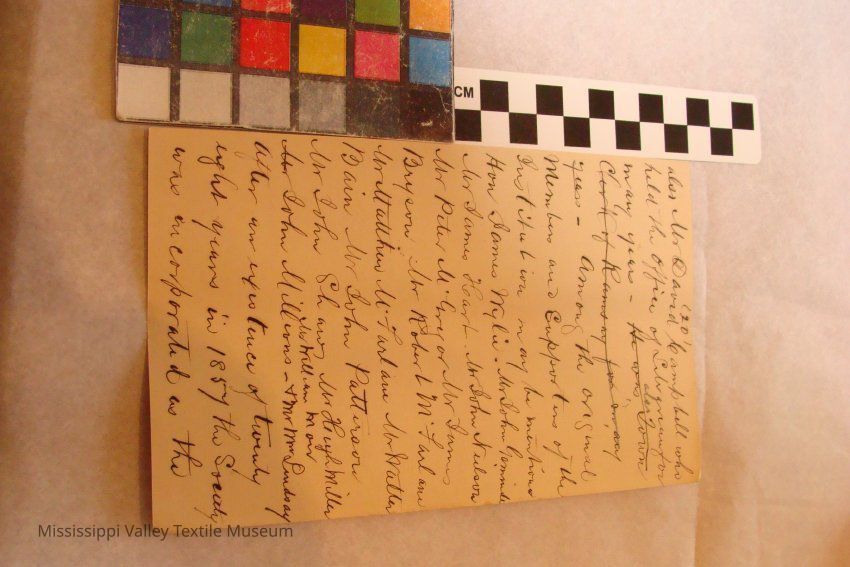 '20'
also Mr David Campbell who
held the office of Librarian for
many years - He was also Town
Clerk of Ramsay for many
years - Among the original
Members and Supporters of the
Institution may be mentioned
Hon James Wylie - Mr John
Mr James Heart - Mr John Neilson
Mr Peter McGregor Mr James
Bryson Mr Robert McFarlane
Mr Matthew McFarlane Mr Walter
Bain Mr John Patterson
Mr John Shaw Mr Hugh Miller
Mr William Moir
Mr John Millions - & Mr Wm Lindsay
After an existence of twenty
eight years in 1857 the Society
was incorporated as the
CM
Mississippi Valley Textile Museum